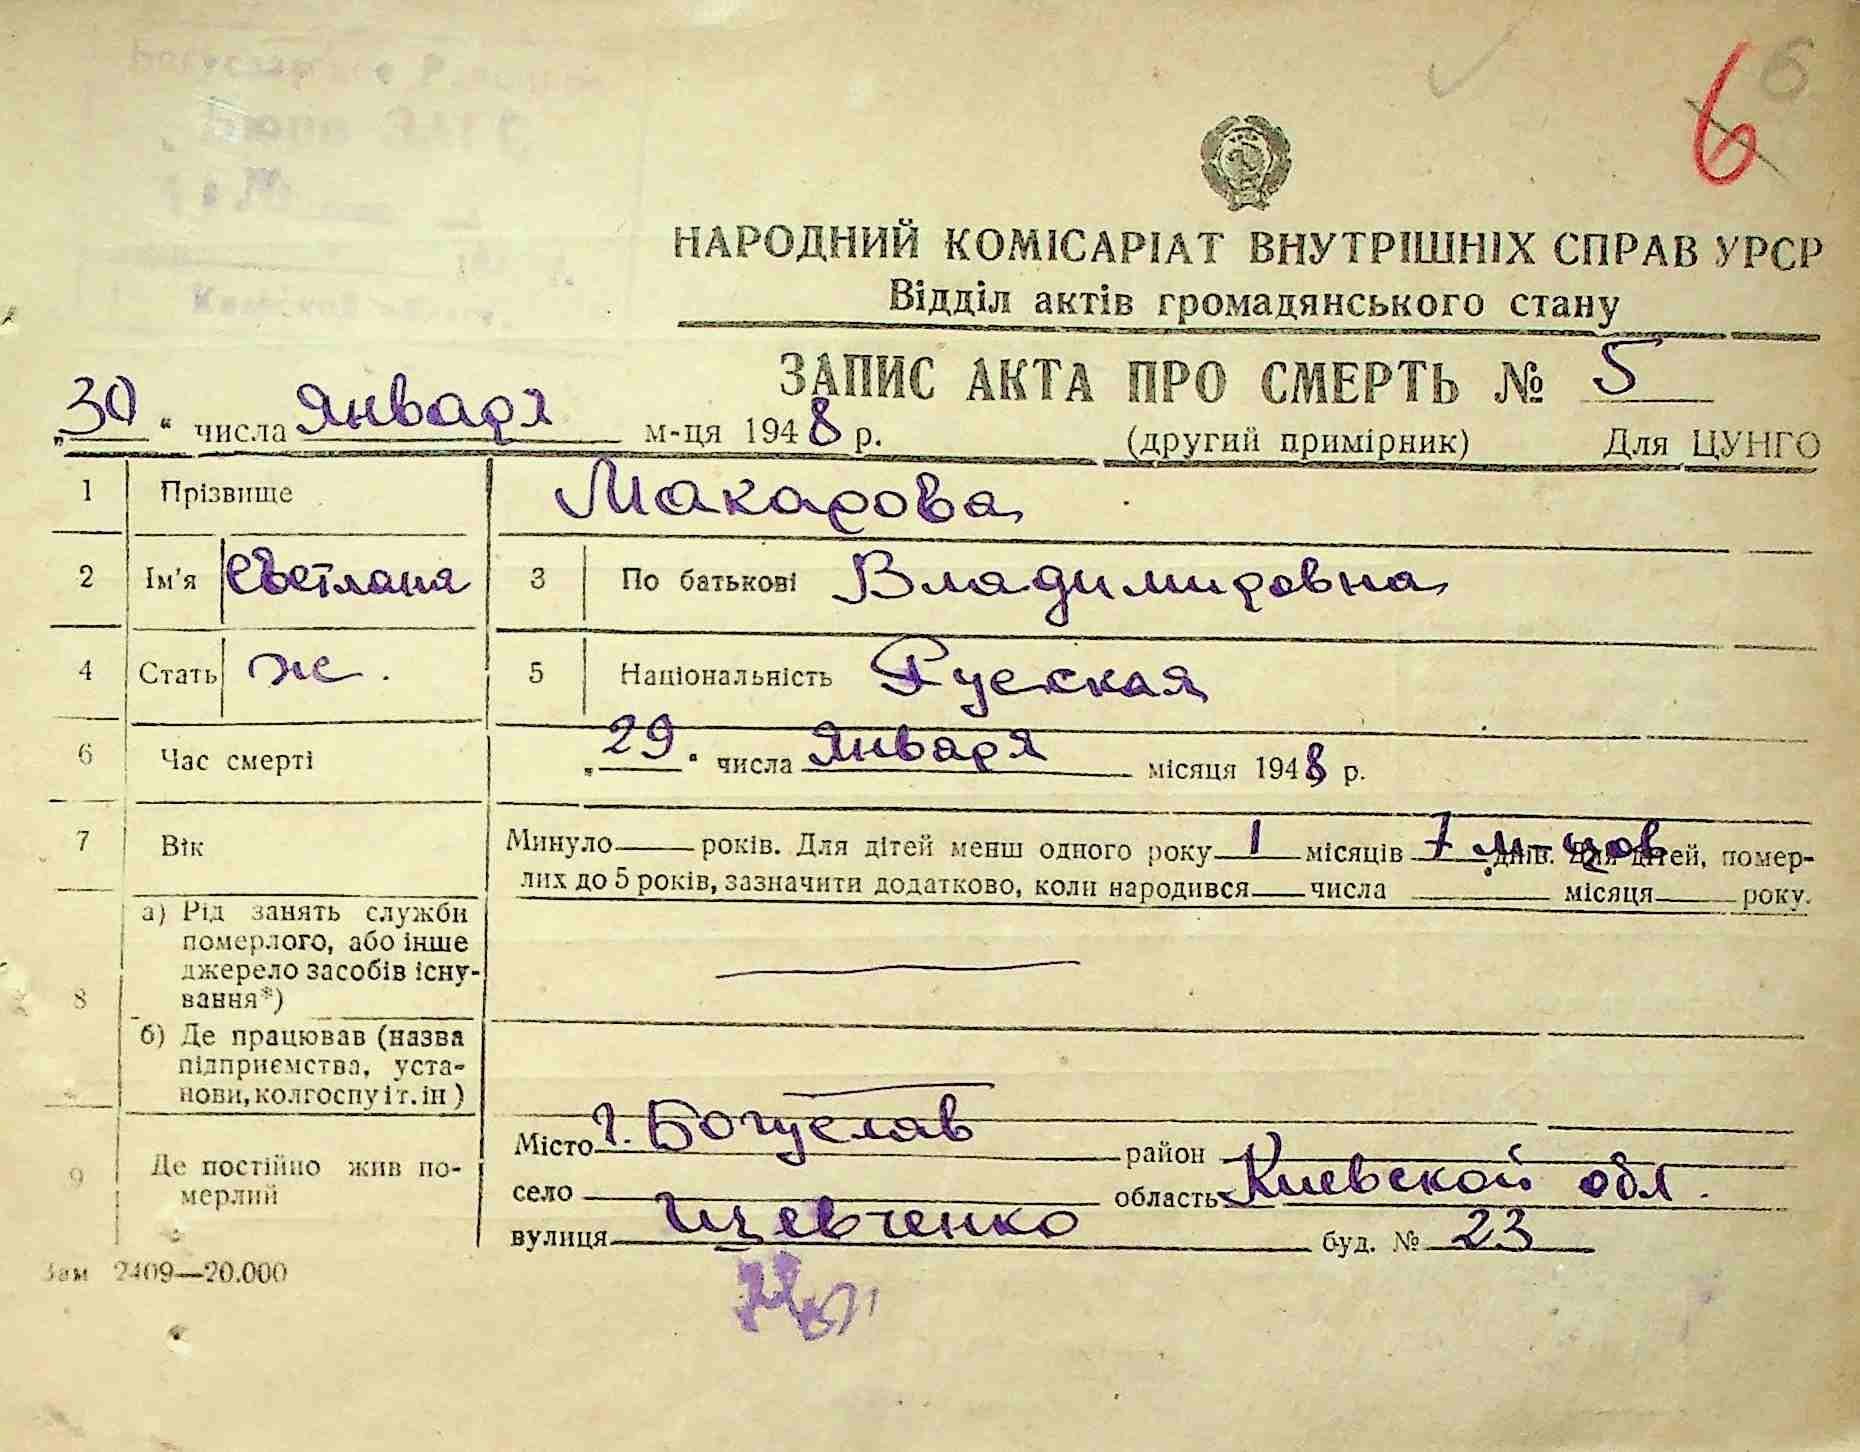 6
6
Бюро ЗАГС
НАРОДНИЙ КОМІСАРІАТ ВНУТРІШНІХ СПРАВ УРСР
Відділ актів громадянського стану
ЗАПИС АКТА ПРО СМЕРТЬ № 5
„30“ числа Января м-ця 1948 р. (другий примірник) Для ЦУНГО
1 Прізвище Макарова
2 Ім'я Светлана 3 По батькові Владимировна
4 Стать ж. 5 Національність Русская
6 Час смерті „29“ числа Января місяця 1948 р.
7 Вік Минуло років. Для дітей менш одного року 1 місяців 7 м-цов днів. Для дітей, помер-
лих до 5 років, зазначити додатково, коли народився числа місяця року.
8 а) Рід занять служби
померлого, або інше
джерело засобів існу-
вання*)
б) Де працював (назва
підприємства, уста-
нови, колгоспу і т. ін)
9 Де постійно жив по-
мерлий
Місто г. Богуслав район
село область Киевской обл.
вулиця Шевченко буд. № 23
Зам 2409—20.000